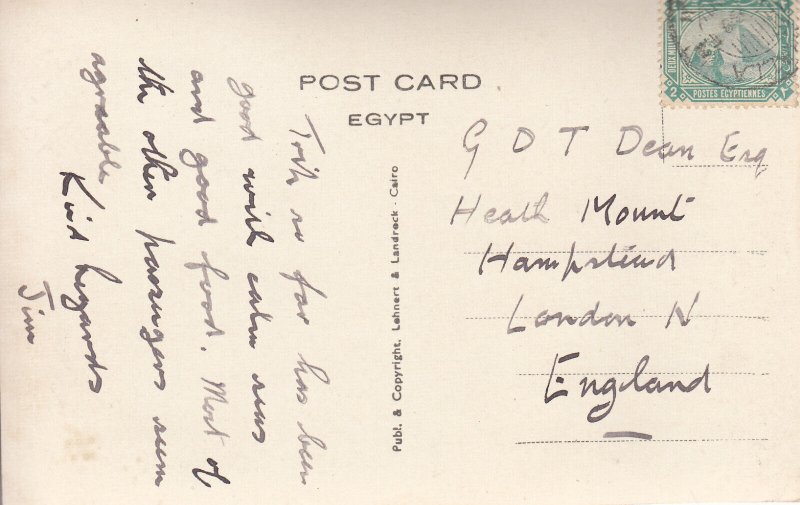 POST CARD
EGYPT
Trip so far has been
good with calm seas
and good food. Most of
the other passengers seem
agreeable
Kind regards
Jim
Publ. & Copyright. Lehnert & Landrock - Cairo
G D T Dean Esq
Heath Mount
Hampstead
London N
England
POSTES EGYPTIENNES
2